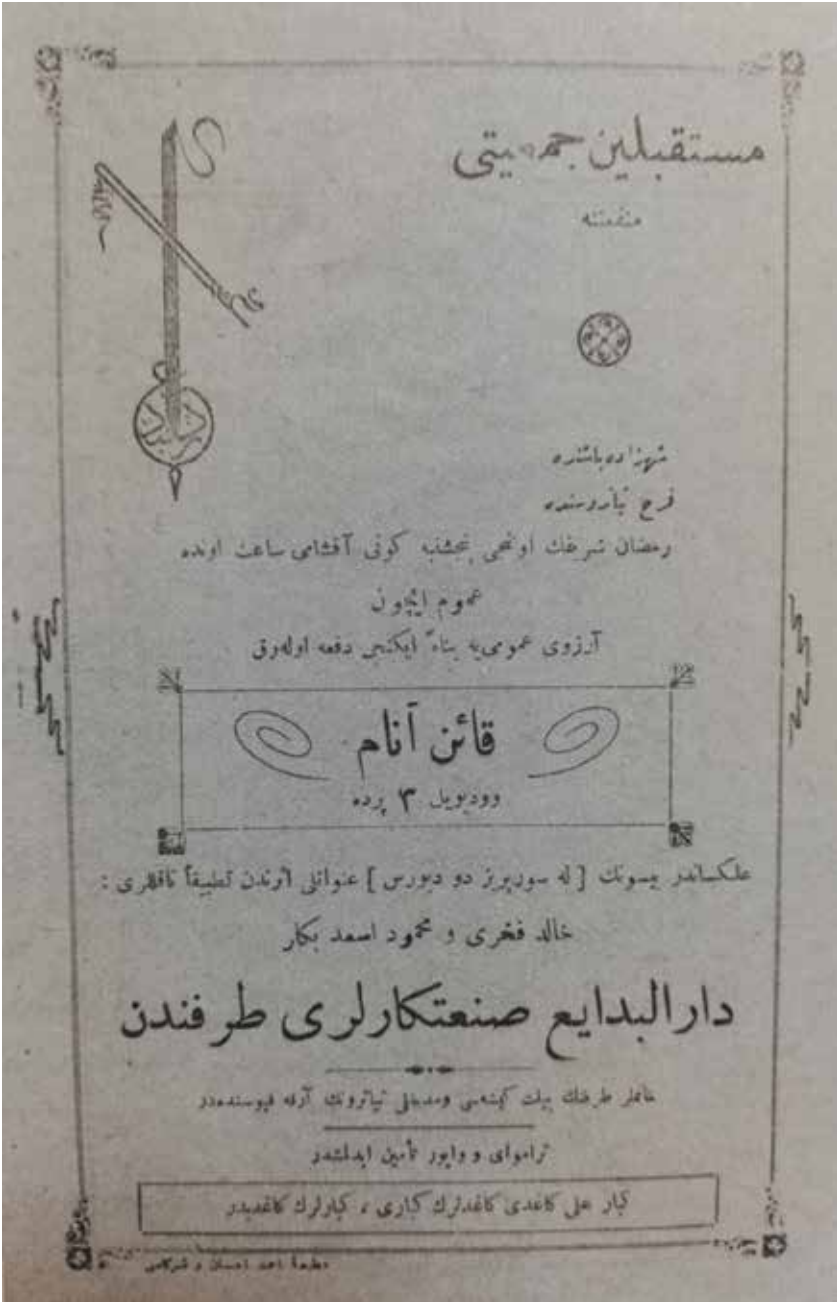 مستقبلين جمعيتى
منفعتنه
شهزاده باشنده
فرح تياتروسنده
رمضان شرفك اونجى پنجشنبه كونى آقشامى ساعت اونده
عموم ايچون
آرزوى عمومى يه بناءً ايكنجى دفعه اوله رق
قائن آنام
وودويل ٣ پرده
علكساندر بيسونك [ له سورپريز دو ديورس ] عنوانلى اثرندن تطبيقاً ناقللرى :
خالد فخرى و محمود اسعد بكلر
دارالبدايع صنعتكارلرى طرفندن
خانملر طرفنك بيلت كيشه سى ومدخلى تياترونك آرقه قپوسنده در
تراموای و واپور تأمين ايدلمشدر
كبار على كاغدى كاغدلرك كبارى ، كبارلرك كاغديدر
مطبعهٔ احمد احسان و شركاسى